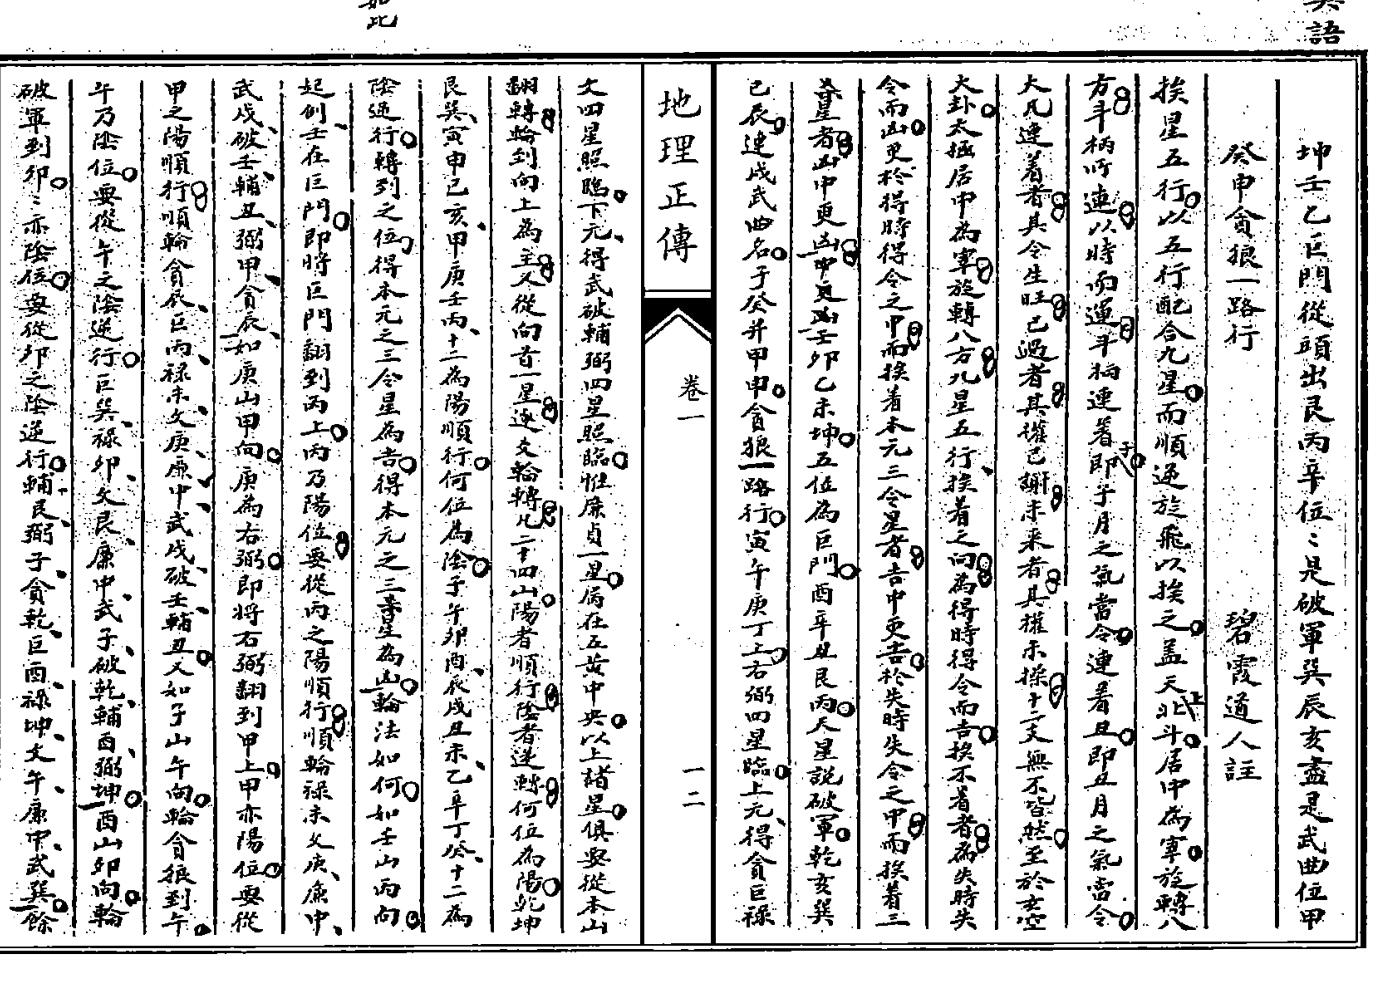 奥語
坤壬乙巨門從頭出艮丙辛位〻是破軍巽辰亥盡是武曲位甲
癸申貪狼一路行　碧霞道人註
挨星五行以五行配合九星而順逆旋飛以挨之蓋天上北斗居中為宰旋轉八
方斗柄所建以時而運斗柄建著子即子月之氣當令建著丑即丑月之氣當令
大凡建着者其令生旺已過者其權已謝未來者其權未操十二支無不皆然至於玄空
大卦太極居中為宰旋轉八方九星五行挨着之向為得時得令而吉挨不着者為失時失
令而凶更於得時得令之中而挨着本元三令星者吉中更吉於失時失令之中而挨着三
煞星者凶中更凶中更凶壬卯乙未坤五位為巨門酉辛丑艮丙天星說破軍乾亥巽
巳辰連戌武曲名子癸并甲申貪狼一路行寅午庚丁上右弼四星臨上元得貪巨祿
地理正傳　卷一　一二
文四星照臨下元得武破輔弼四星照臨惟廉貞一星居在五黃中央以上諸星俱要從本山
翻轉輪到向上為主又從向首一星逐爻輪轉凡二十四山陽者順行陰者逆轉何位為陽乾坤
艮巽寅申巳亥甲庚壬丙十二為陽順行何位為陰子午卯酉辰戌丑未乙辛丁癸十二為
陰逆行轉到之位得本元之三令星為吉得本元之三煞星為凶輪法如何如壬山丙向
起例壬在巨門即將巨門翻到丙上丙乃陽位要從丙之陽順行順輪祿未文庚廉中
武戌破壬輔丑弼甲貪辰如庚山甲向庚為右弼即將右弼翻到甲上甲亦陽位要從
甲之陽順行順輪貪辰巨丙祿未文庚廉中武戌破壬輔丑又如子山午向輪貪狼到午
午乃陰位要從午之陰逆行巨巽祿卯文艮廉中武子破乾輔酉弼坤酉山卯向輪
破軍到卯〻亦陰位要從卯之陰逆行輔艮弼子貪乾巨酉祿坤文午廉中武巽餘
如此